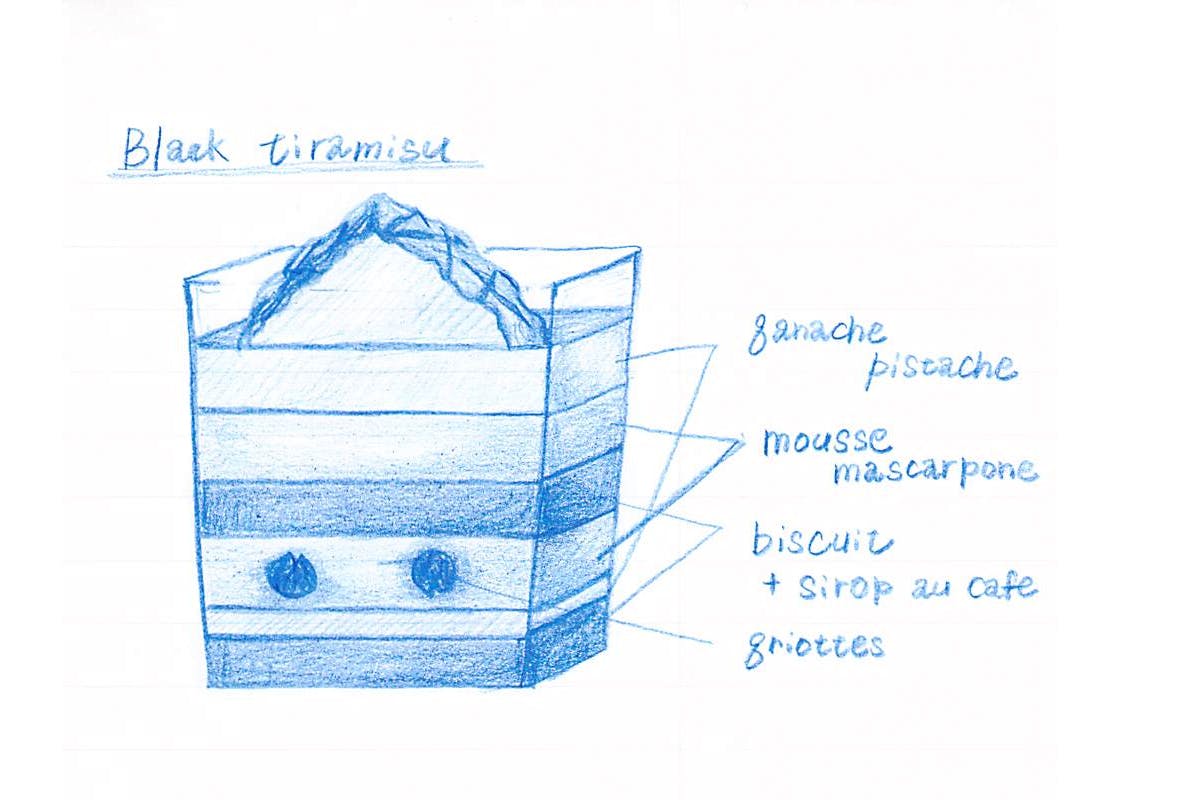 Black tiramisu
ganache
pistache
mousse
mascarpone
biscuit
+ sirop au cafe
griottes